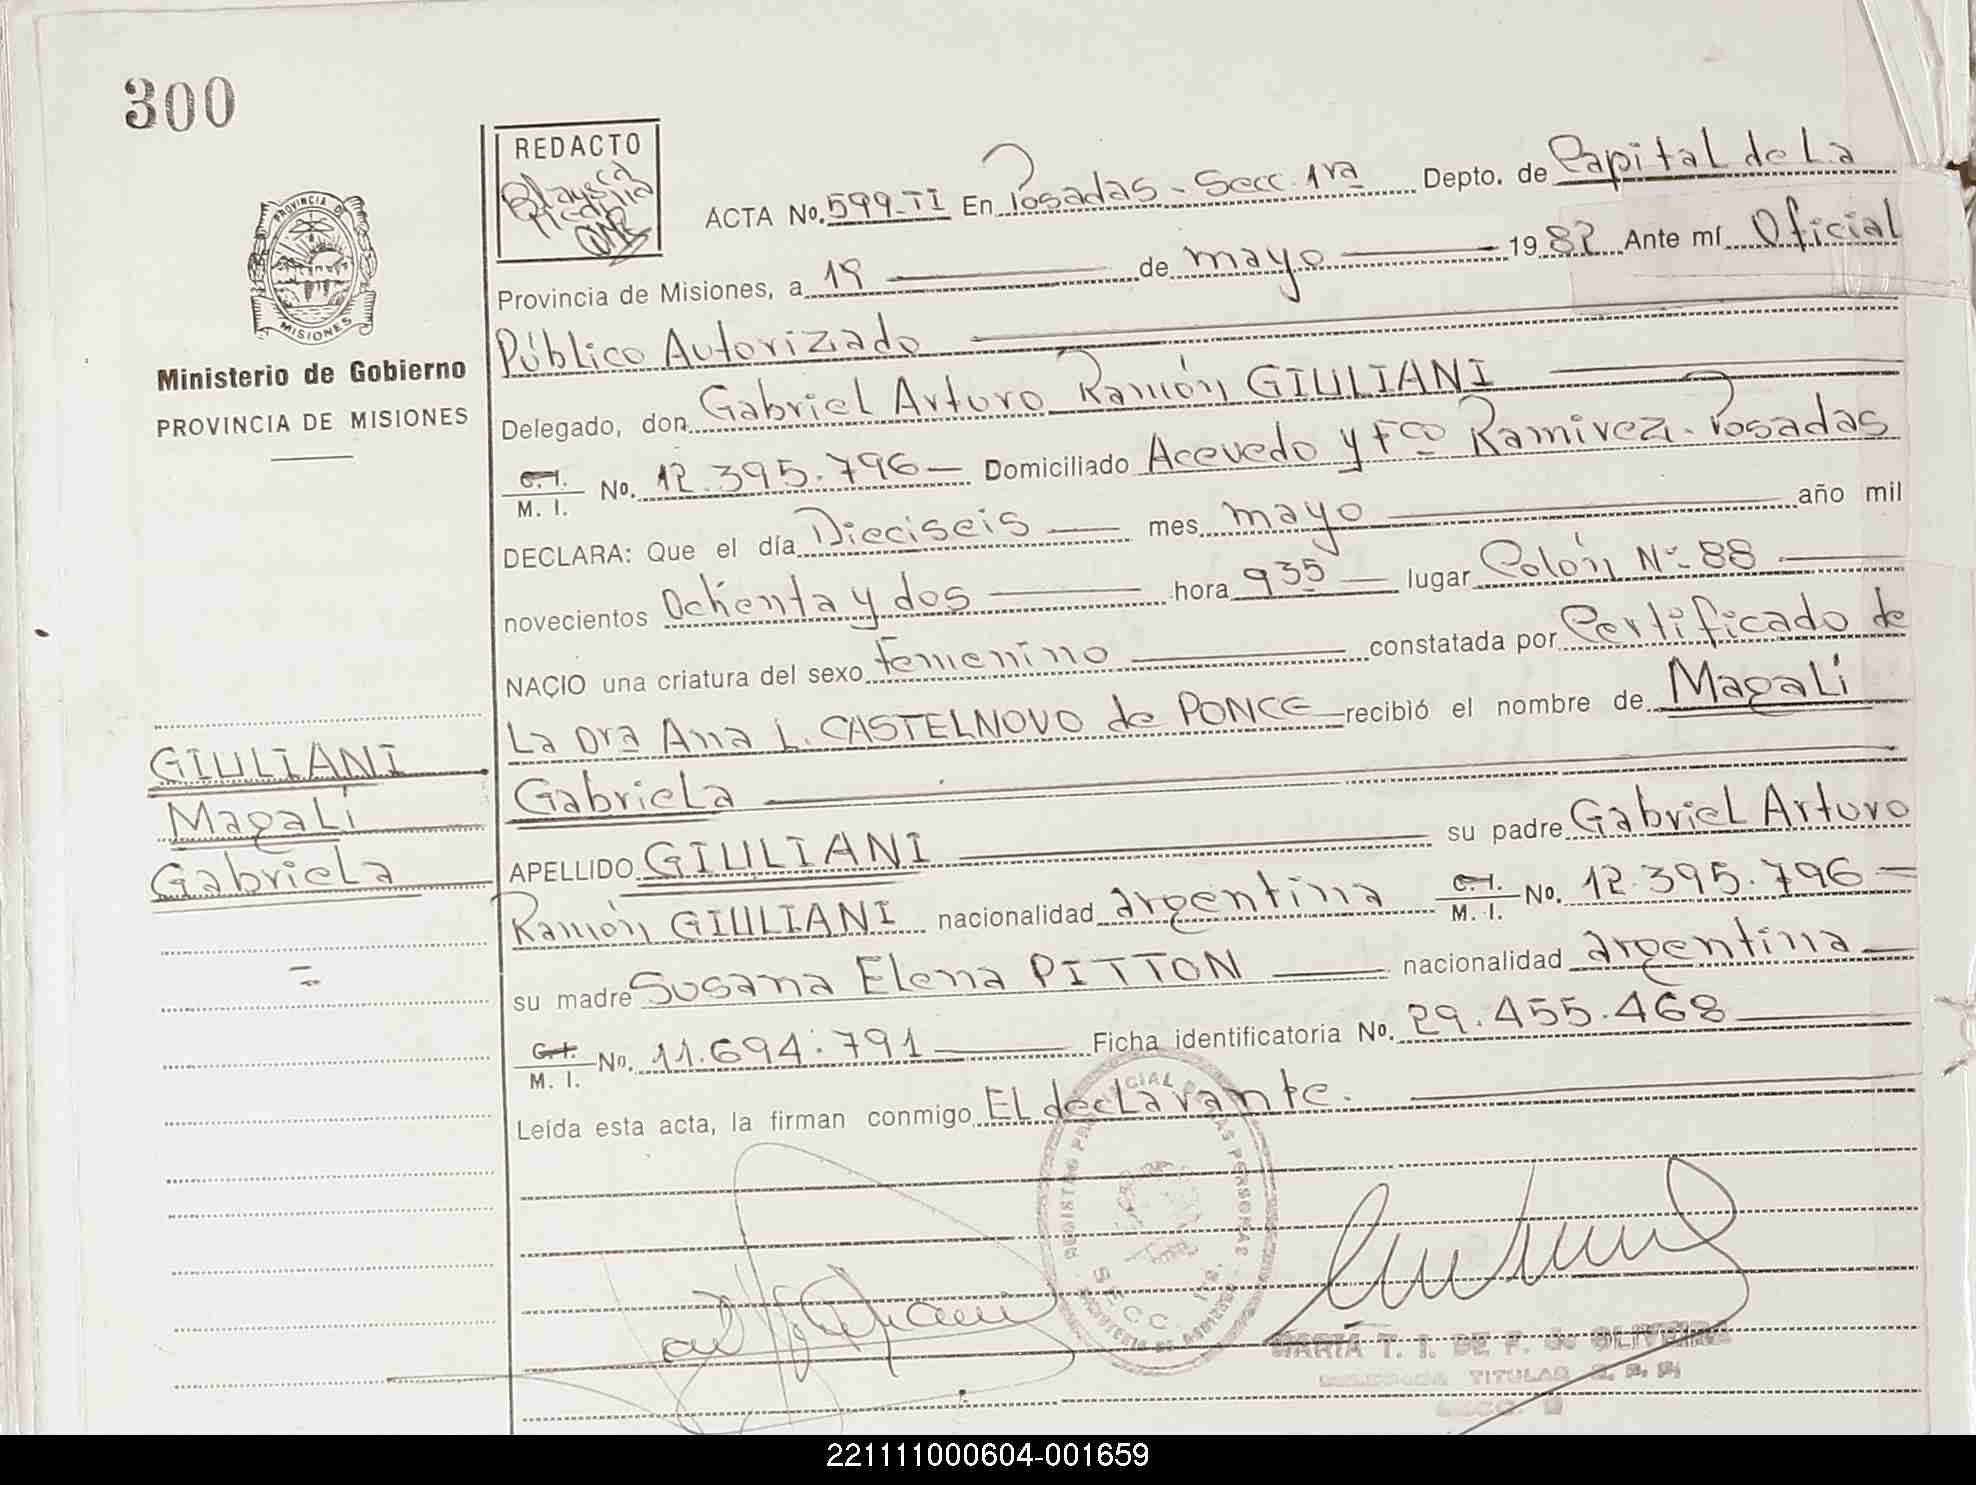 300
REDACTO
PROVINCIA DE
MISIONES
Ministerio de Gobierno
PROVINCIA DE MISIONES
ACTA No. 599-TI En Posadas - Secc. 1ra Depto. de Capital de La
Provincia de Misiones, a 19 de mayo 1982 Ante mí Oficial
Público Autorizado
Delegado, don Gabriel Arturo Ramón GIULIANI
C. I. M. I. No. 12.395.796 Domiciliado Acevedo y Fco Ramirez. Posadas
DECLARA: Que el día Dieciseis mes mayo año mil
novecientos Ochenta y dos hora 9 35 lugar Colón Nº 88
NACIO una criatura del sexo Femenino constatada por Certificado de
La Dra Ana L. CASTELNOVO de PONCE recibió el nombre de Magali
Gabriela
APELLIDO GIULIANI su padre Gabriel Arturo
Ramón GIULIANI nacionalidad argentina C. I. M. I. No. 12.395.796
su madre Susana Elena PITTON nacionalidad argentina
C. I. M. I. No. 11.694.791 Ficha identificatoria No. 29.455.468
Leída esta acta, la firman conmigo El declarante.
GIULIANI
Magali
Gabriela
REGISTRO PROVINCIAL DE LAS PERSONAS
SECC. 1ra.
MARIA T. I. DE F. de OLIVEIRA
TITULAR
221111000604-001659